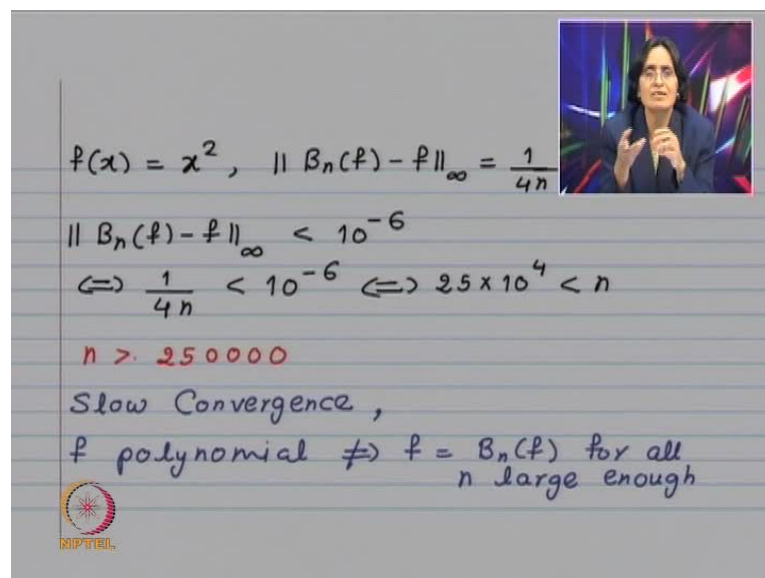 f(x) = x², || Bₙ(f) - f ||∞ = 1/4n
|| Bₙ(f) - f ||∞ < 10⁻⁶
⇔ 1/4n < 10⁻⁶ ⇔ 25 × 10⁴ < n
n > 250000
Slow Convergence,
f polynomial ⇏ f = Bₙ(f) for all
n large enough
NPTEL